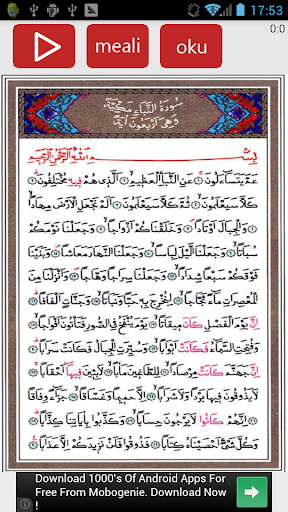 17:53
meali
oku
0:0
سُورَةُ النَّبَأِ مَكِّيَّةٌ
وَهِيَ اَرْبَعُونَ اٰيَةً
بِسْمِ اللّٰهِ الرَّحْمٰنِ الرَّحِيمِ
عَمَّ يَتَسَاءَلُونَ ۝ عَنِ النَّبَأِ الْعَظِيمِ ۝ اَلَّذِي هُمْ فِيهِ مُخْتَلِفُونَ ۝
كَلَّا سَيَعْلَمُونَ ۝ ثُمَّ كَلَّا سَيَعْلَمُونَ ۝ اَلَمْ نَجْعَلِ الْاَرْضَ مِهَادًا ۝
وَالْجِبَالَ اَوْتَادًا ۝ وَخَلَقْنَاكُمْ اَزْوَاجًا ۝ وَجَعَلْنَا نَوْمَكُمْ
سُبَاتًا ۝ وَجَعَلْنَا الَّيْلَ لِبَاسًا ۝ وَجَعَلْنَا النَّهَارَ مَعَاشًا ۝ وَبَنَيْنَا
فَوْقَكُمْ سَبْعًا شِدَادًا ۝ وَجَعَلْنَا سِرَاجًا وَهَّاجًا ۝ وَاَنْزَلْنَا مِنَ
الْمُعْصِرَاتِ مَاءً ثَجَّاجًا ۝ لِنُخْرِجَ بِهِ حَبًّا وَنَبَاتًا ۝ وَجَنَّاتٍ اَلْفَافًا ۝
اِنَّ يَوْمَ الْفَصْلِ كَانَ مِيقَاتًا ۝ يَوْمَ يُنْفَخُ فِي الصُّورِ فَتَأْتُونَ اَفْوَاجًا ۝
وَفُتِحَتِ السَّمَاءُ فَكَانَتْ اَبْوَابًا ۝ وَسُيِّرَتِ الْجِبَالُ فَكَانَتْ سَرَابًا ۝
اِنَّ جَهَنَّمَ كَانَتْ مِرْصَادًا ۝ لِلطَّاغِينَ مَاٰبًا ۝ لَابِثِينَ فِيهَا اَحْقَابًا ۝
لَا يَذُوقُونَ فِيهَا بَرْدًا وَلَا شَرَابًا ۝ اِلَّا حَمِيمًا وَغَسَّاقًا ۝ جَزَاءً وِفَاقًا ۝
اِنَّهُمْ كَانُوا لَا يَرْجُونَ حِسَابًا ۝ وَكَذَّبُوا بِاٰيَاتِنَا كِذَّابًا ۝
وَكُلَّ شَيْءٍ اَحْصَيْنَاهُ كِتَابًا ۝ فَذُوقُوا فَلَنْ نَزِيدَكُمْ اِلَّا عَذَابًا ۝
Download 1000's Of Android Apps For
Free From Mobogenie. Download Now
!